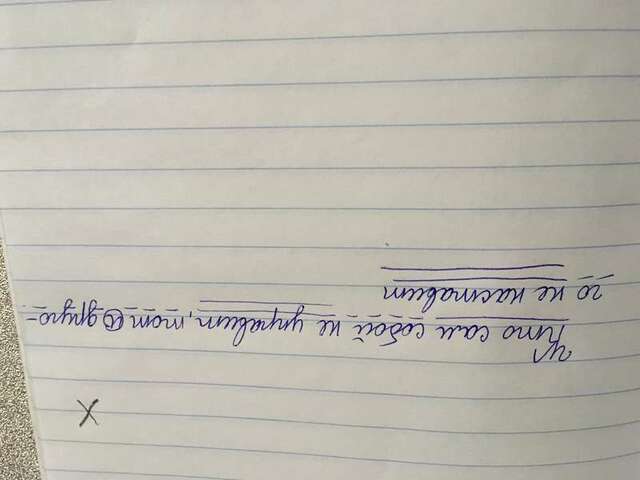 Х
Кто сам собой не управит, тот и друго-
го не наставит